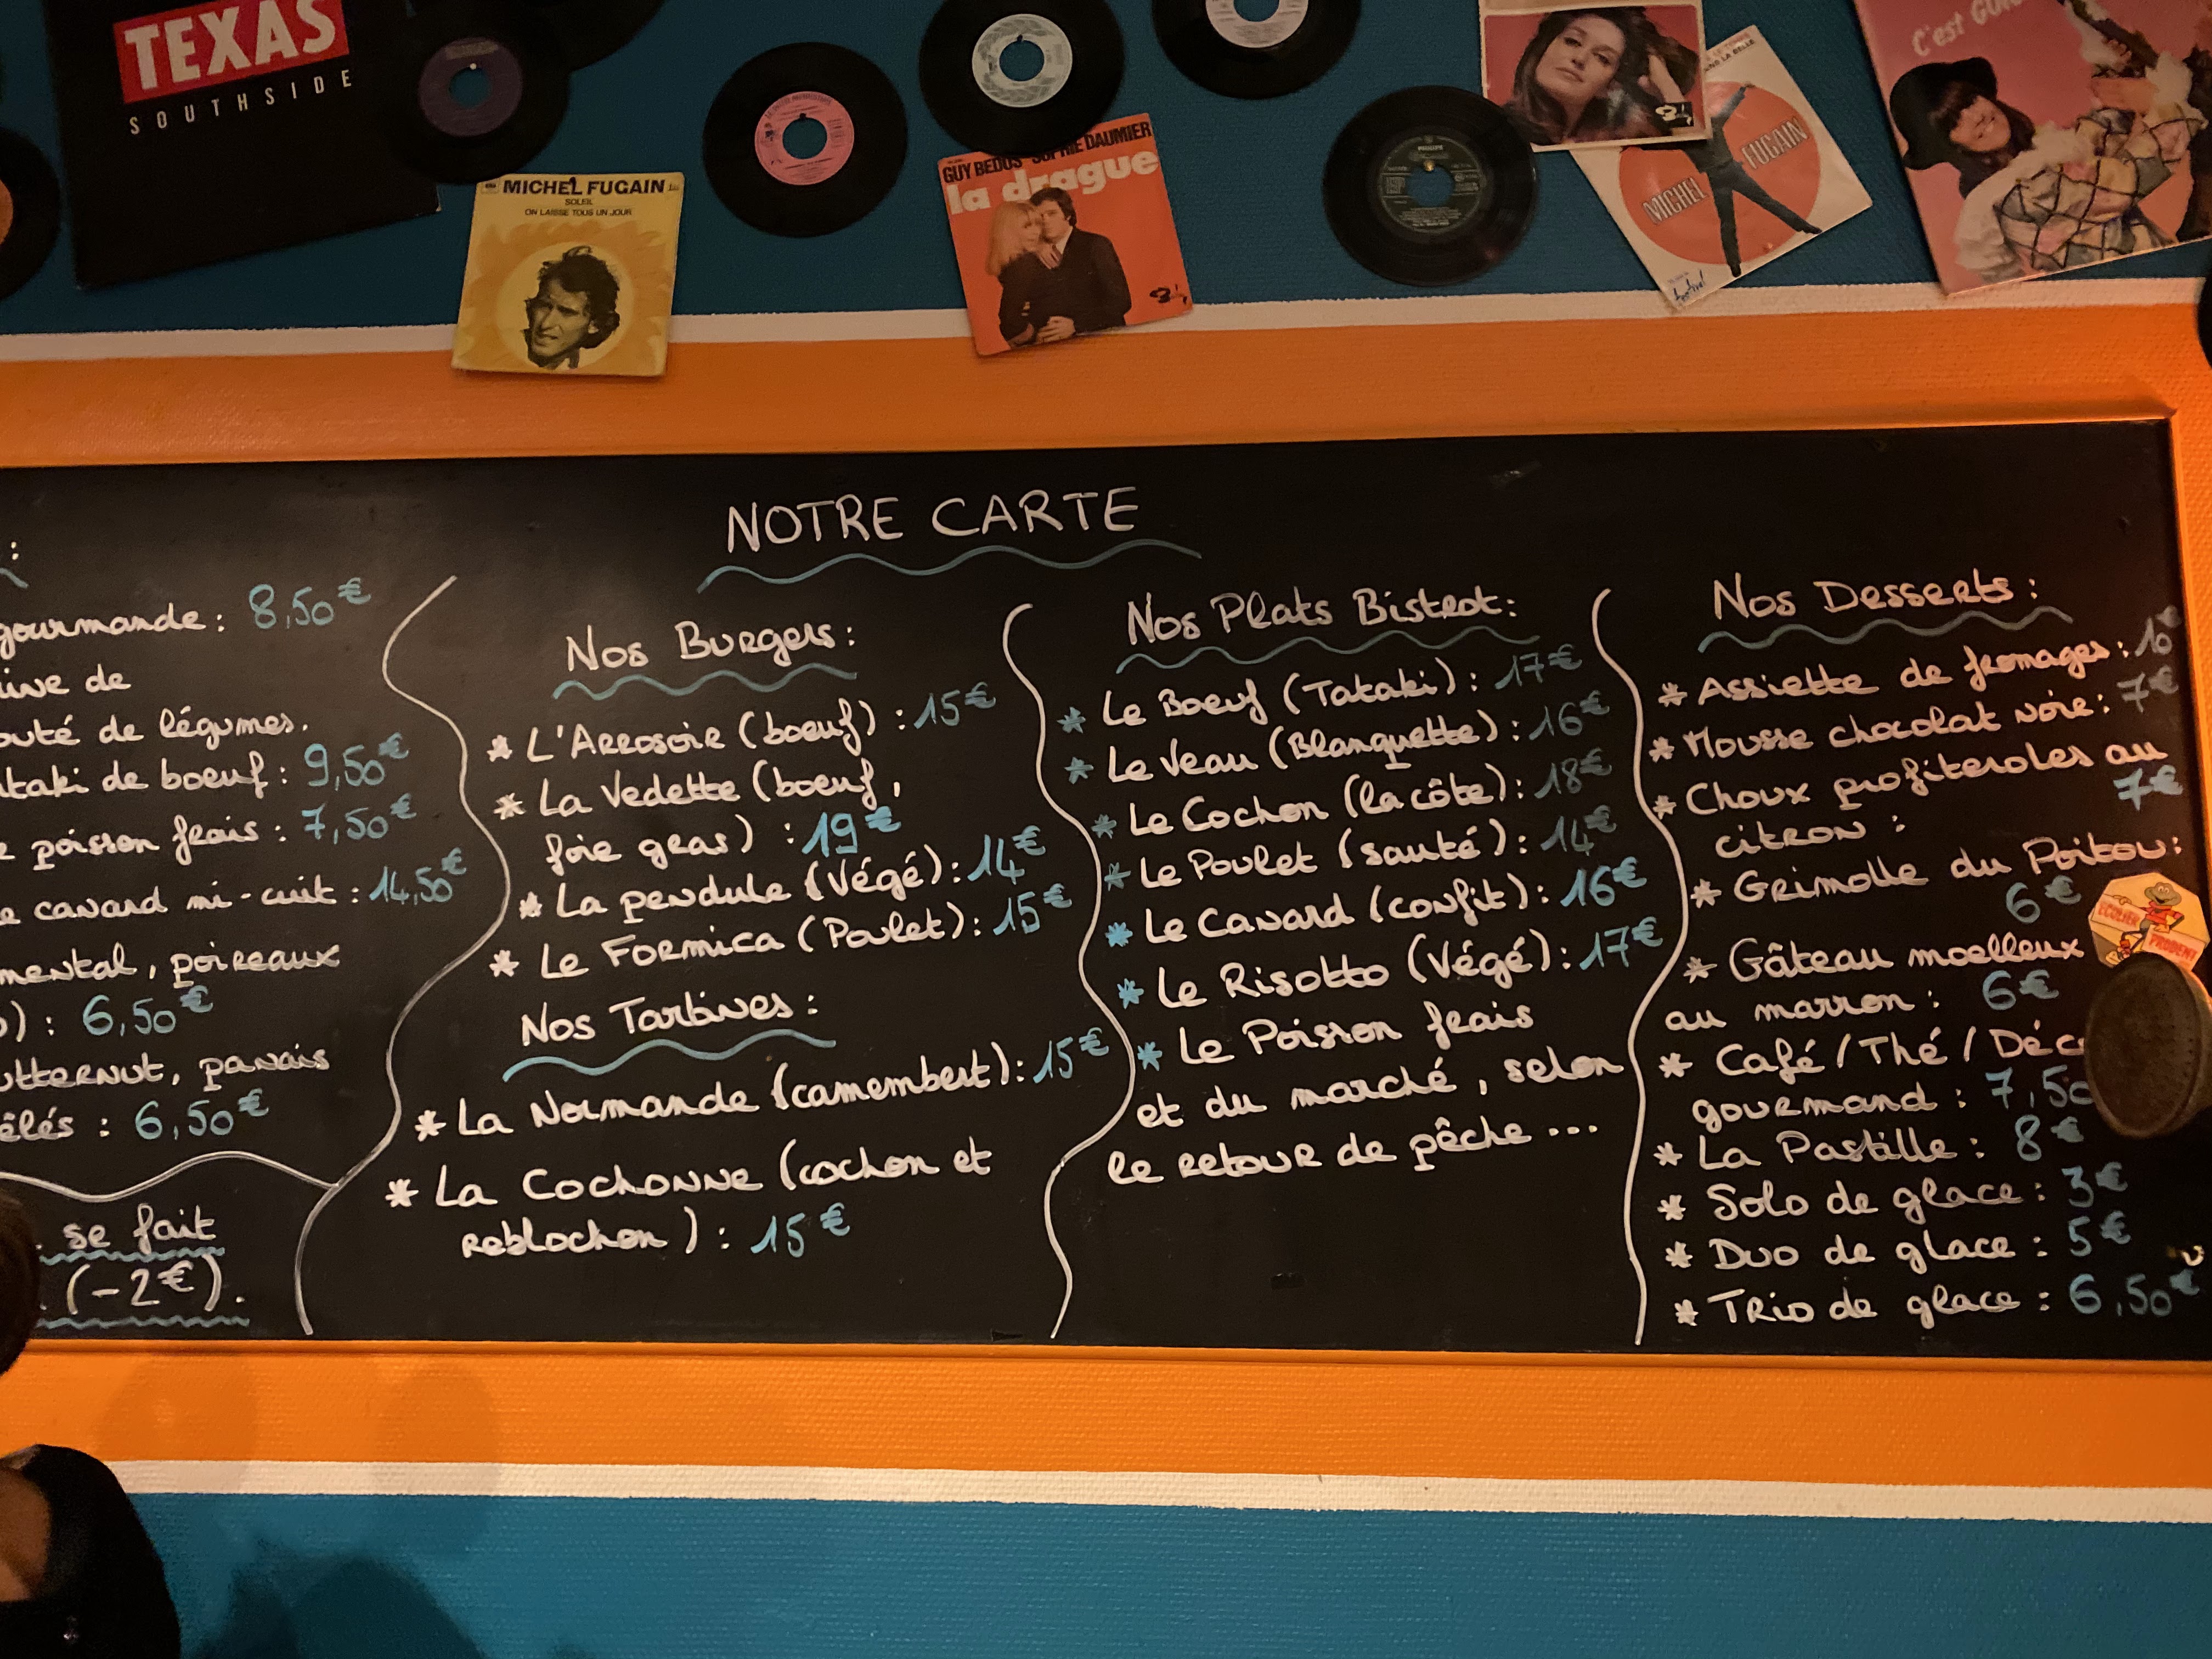 TEXAS
SOUTHSIDE
MICHEL FUGAIN
SOLEIL
ON LAISSE TOUS UN JOUR
GUY BEDOS SOPHIE DAUMIER
la drague
PHILIPS
MICHEL
FUGAIN
C'est
NOTRE CARTE
:
gourmande : 8,50€
de
de légumes.
de boeuf : 9,50€
poisson frais : 7,50€
canard mi-cuit : 14,50€
, poireaux
) : 6,50€
, panais
: 6,50€
se fait
(-2€).
Nos Burgers :
* L'Arrosoir (boeuf) : 15€
* La Vedette (boeuf,
foie gras) : 19€
* La pendule (Végé) : 14€
* Le Formica (Poulet) : 15€
Nos Tartines :
* La Normande (camembert) : 15€
* La Cochonne (cochon et
reblochon) : 15€
Nos Plats Bistrot :
* Le Boeuf (Tataki) : 17€
* Le Veau (Blanquette) : 16€
* Le Cochon (la côte) : 18€
* Le Poulet (sauté) : 14€
* Le Canard (confit) : 16€
* Le Risotto (Végé) : 17€
* Le Poisson frais
et du marché, selon
le retour de pêche ...
Nos Desserts :
* Assiette de fromages : 10€
* Mousse chocolat noir : 7€
* Choux profiteroles au
citron : 7€
* Grimolle du Poitou :
6€
* Gâteau moelleux
au marron : 6€
* Café / Thé / Déc
gourmand : 7,50
* La Pastille : 8€
* Solo de glace : 3€
* Duo de glace : 5€
* Trio de glace : 6,50€
ECOLIER
PRUDENT